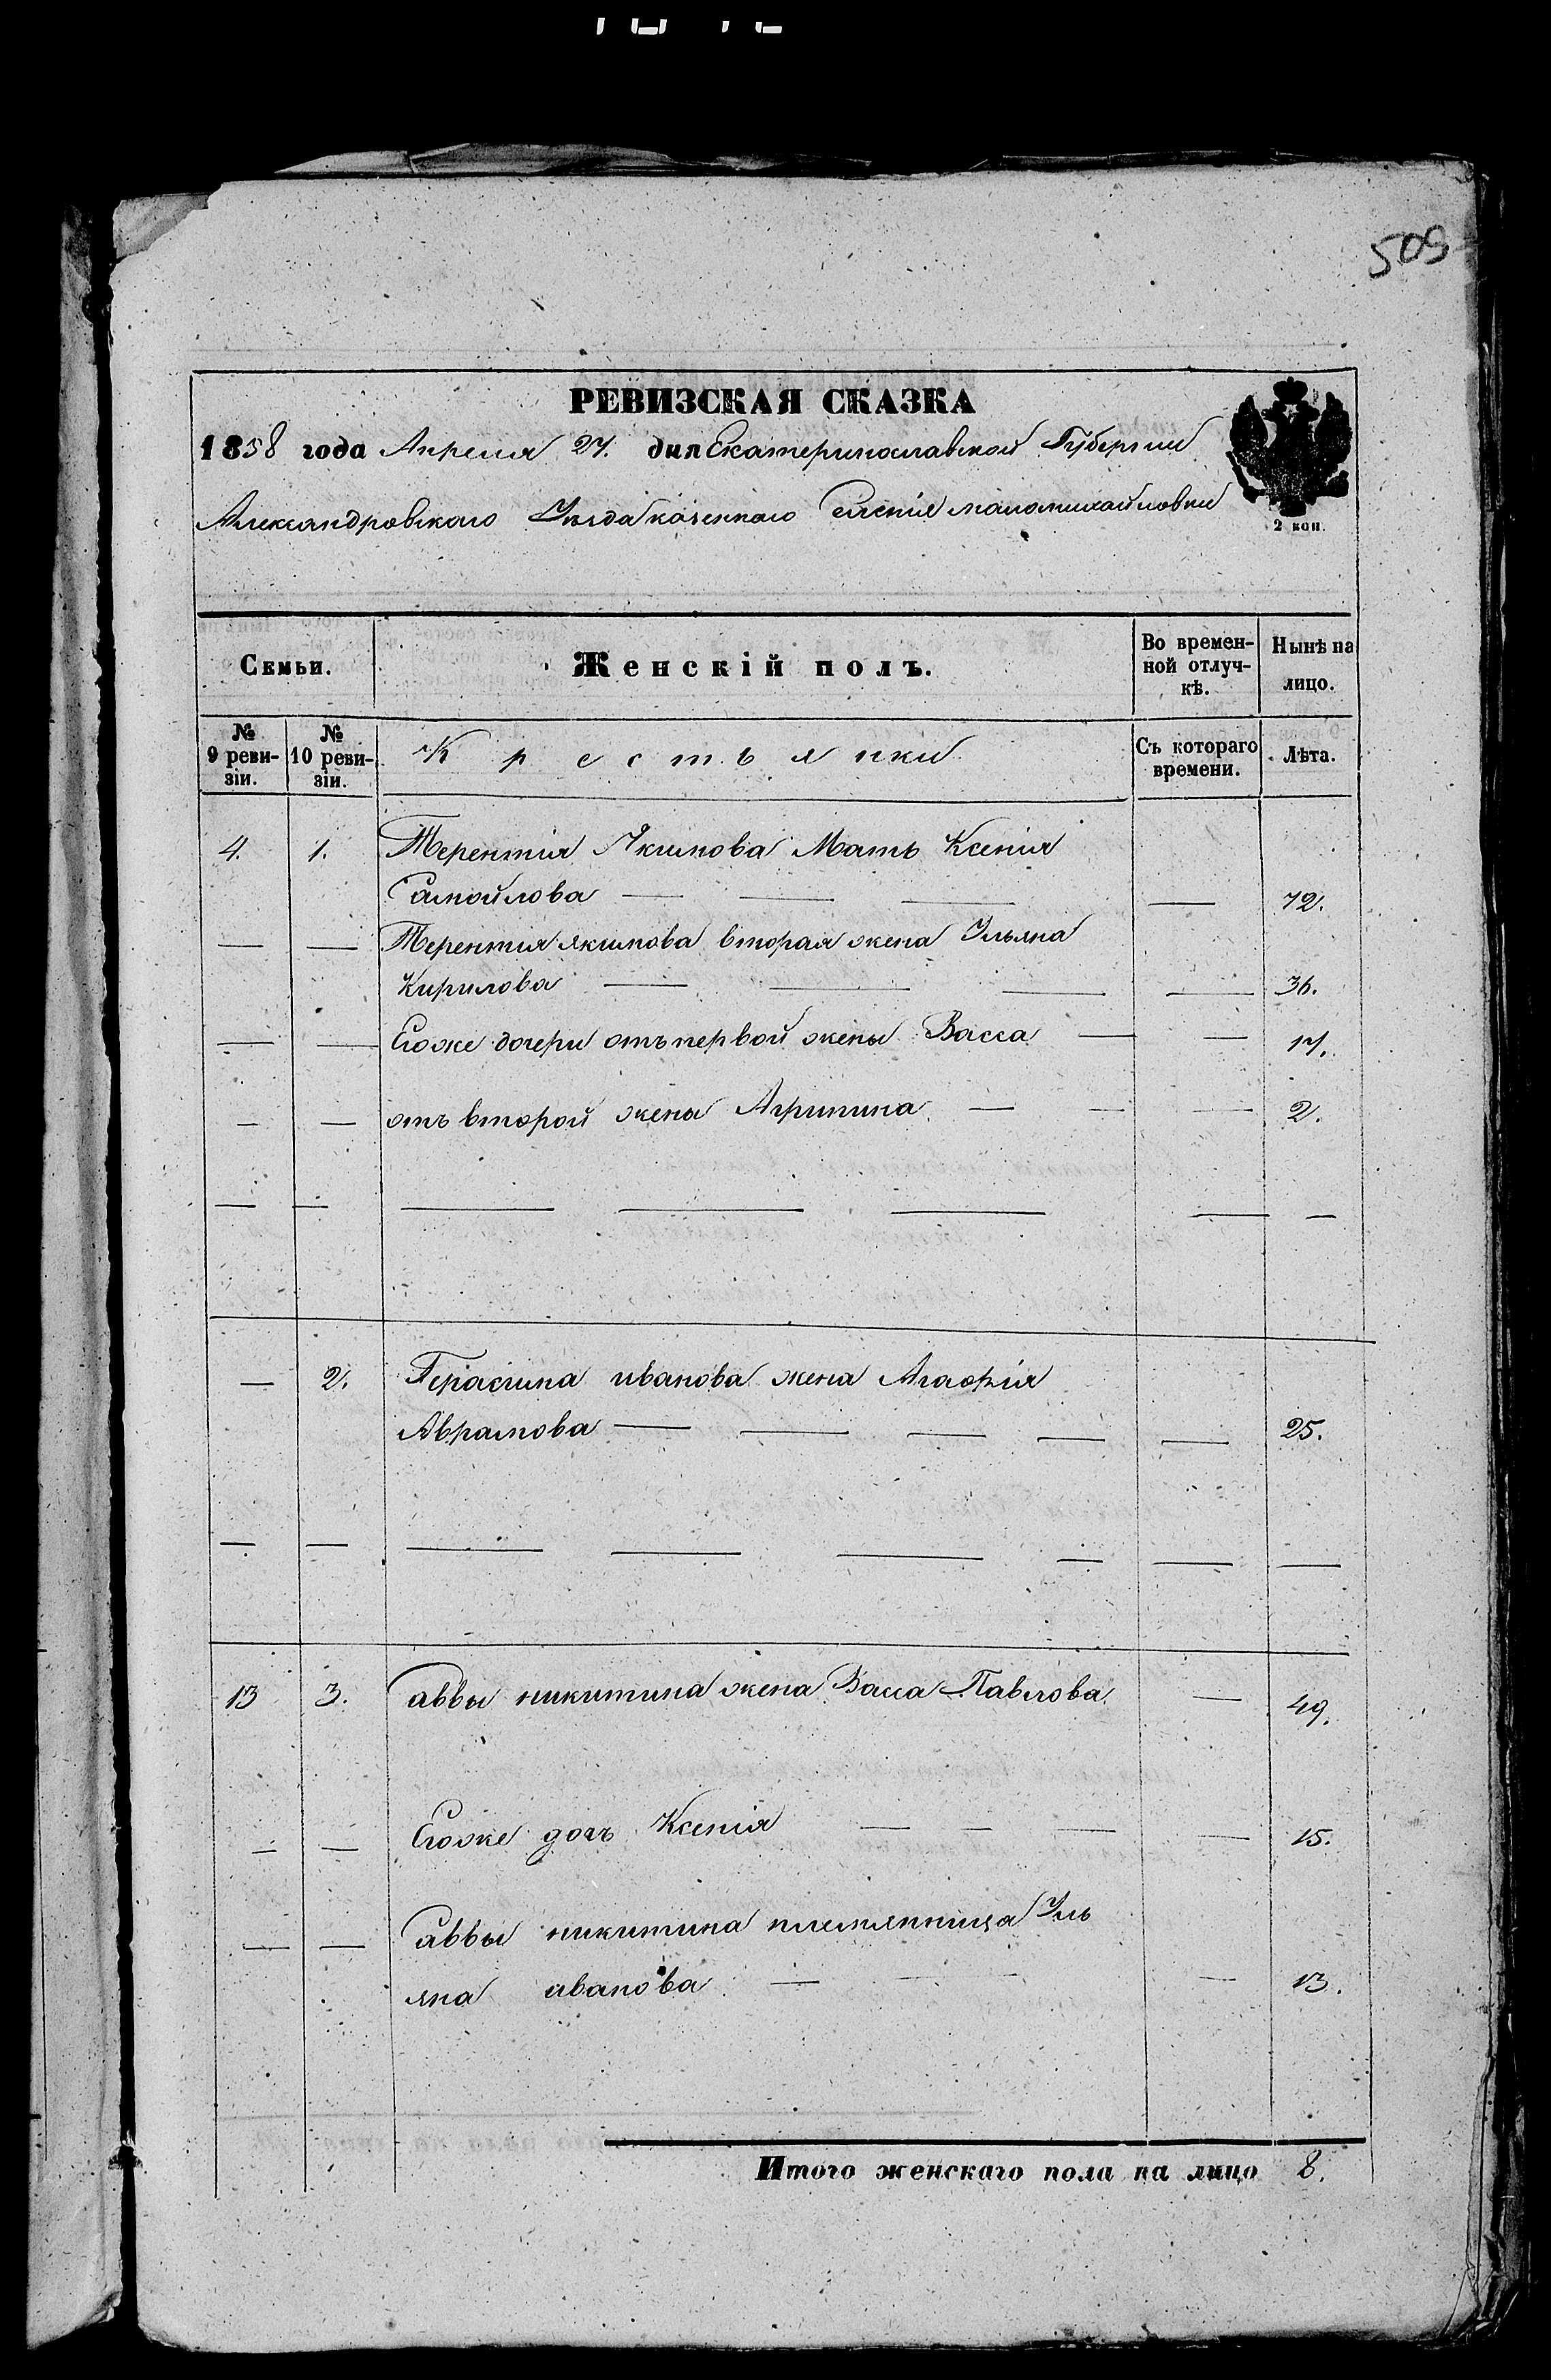 509
РЕВИЗСКАЯ СКАЗКА
1858 года Апреля 27. дня Екатеринославской Губернии
Александровского Уезда казенного Селения маломихайловки
2 коп.
Семьи. Женскій полъ. Во времен-
ной отлуч-
кѣ. Нынѣ на
лицо.
№
9 реви-
зіи. №
10 реви-
зіи. Крестьянки Съ котораго
времени. Лѣта.
4. 1. Терентия Якимова Мать Ксенія
Самойлова — — — — 72.
— — Терентия якимова вторая жена Ульяна
Кирилова — — — — 36.
— — Егоже дочери отъ первой жены Васса — — 17.
— — отъ второй жены Агрипина — — — 2.
— — — — — — —
— 2. Герасима иванова жена Агафія
Аврамова — — — — — 25.
— — — — — — — —
13 3. Саввы никитина жена Васса Павлова — 49.
— — Егоже дочь Ксенія — — — — 15.
— — Саввы никитина племянница Уль
яна иванова — — — — 13.
Итого женскаго пола на лицо 8.